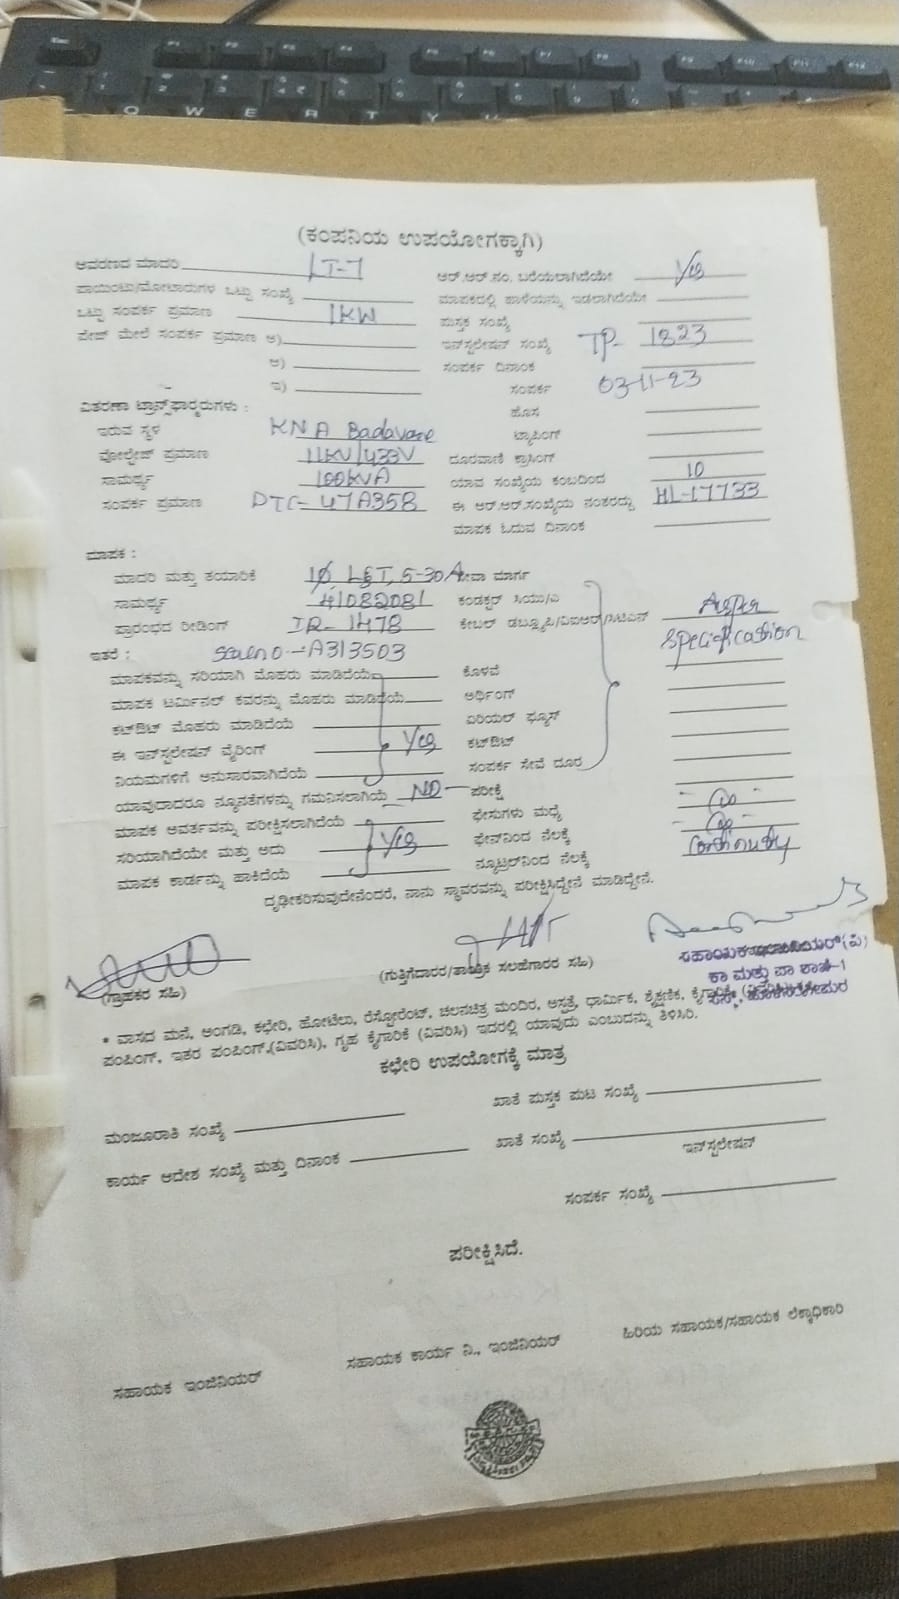 Esc F1 F2 F3 F4 F5 F6 F7 F8 F9 F10 F11 F12
Q W E R T Y
(ಕಂಪನಿಯ ಉಪಯೋಗಕ್ಕಾಗಿ)
ಆವರಣದ ಮಾದರಿ LT-7 ಆರ್.ಆರ್.ನಂ. ಬರೆಯಲಾಗಿದೆಯೇ Yes
ಪಾಯಿಂಟು/ಮೋಟಾರುಗಳ ಒಟ್ಟು ಸಂಖ್ಯೆ ಮಾಪಕದಲ್ಲಿ ಹಾಳೆಯನ್ನು ಇಡಲಾಗಿದೆಯೇ
ಒಟ್ಟು ಸಂಪರ್ಕ ಪ್ರಮಾಣ 1KW ಪುಸ್ತಕ ಸಂಖ್ಯೆ
ಪೇಜ್ ಮೇಲೆ ಸಂಪರ್ಕ ಪ್ರಮಾಣ ಅ) ಇನ್‌ಸ್ಟಲೇಷನ್ ಸಂಖ್ಯೆ TP- 1823
ಆ) ಸಂಪರ್ಕ ದಿನಾಂಕ
ಇ) ಸಂಪರ್ಕ 03-11-23
ವಿತರಣಾ ಟ್ರಾನ್ಸ್‌ಫಾರ್ಮರುಗಳು : ಹೊಸ
ಇರುವ ಸ್ಥಳ KNA Badavane ಟ್ಯಾಪಿಂಗ್
ವೋಲ್ಟೇಜ್ ಪ್ರಮಾಣ 11KV/433V ದೂರವಾಣಿ ಕ್ರಾಸಿಂಗ್
ಸಾಮರ್ಥ್ಯ 100KVA ಯಾವ ಸಂಖ್ಯೆಯ ಕಂಬದಿಂದ 10
ಸಂಪರ್ಕ ಪ್ರಮಾಣ DTC- 47A358 ಈ ಆರ್.ಆರ್.ಸಂಖ್ಯೆಯ ನಂತರದ್ದು HL-17733
ಮಾಪಕ ಓದುವ ದಿನಾಂಕ
ಮಾಪಕ :
ಮಾದರಿ ಮತ್ತು ತಯಾರಿಕೆ 1Ø, L&T, 5-30A ಸೇವಾ ಮಾರ್ಗ
ಸಾಮರ್ಥ್ಯ 41082081 ಕಂಡಕ್ಟರ್ ಸಿಯು/ಎ
ಪ್ರಾರಂಭದ ರೀಡಿಂಗ್ IR- 1478 ಕೇಬಲ್ ಡಬ್ಲ್ಯೂಪಿ/ವಿಐಆರ್/ಸಿಟಿಎಸ್ As per
ಇತರೆ : Seal no -A313503 Specification
ಮಾಪಕವನ್ನು ಸರಿಯಾಗಿ ಮೊಹರು ಮಾಡಿದೆಯೆ ಕೊಳವೆ
ಮಾಪಕ ಟರ್ಮಿನಲ್ ಕವರನ್ನು ಮೊಹರು ಮಾಡಿದೆಯೆ ಅರ್ಥಿಂಗ್
ಕಟ್‌ಔಟ್ ಮೊಹರು ಮಾಡಿದೆಯೆ ಏರಿಯಲ್ ಫ್ಯೂಸ್
ಈ ಇನ್‌ಸ್ಟಲೇಷನ್ ವೈರಿಂಗ್ Yes ಕಟ್‌ಔಟ್
ನಿಯಮಗಳಿಗೆ ಅನುಸಾರವಾಗಿದೆಯೆ ಸಂಪರ್ಕ ಸೇವೆ ದೂರ
ಯಾವುದಾದರೂ ನ್ಯೂನತೆಗಳನ್ನು ಗಮನಿಸಲಾಗಿಯೆ NO ಪರೀಕ್ಷೆ
ಮಾಪಕ ಆವರ್ತವನ್ನು ಪರೀಕ್ಷಿಸಲಾಗಿದೆಯೆ ಫೇಸುಗಳು ಮಧ್ಯೆ
ಸರಿಯಾಗಿದೆಯೇ ಮತ್ತು ಅದು Yes ಫೇಸ್‌ನಿಂದ ನೆಲಕ್ಕೆ
ಮಾಪಕ ಕಾರ್ಡನ್ನು ಹಾಕಿದೆಯೆ ನ್ಯೂಟ್ರಲ್‌ನಿಂದ ನೆಲಕ್ಕೆ Continuity
ದೃಢೀಕರಿಸುವುದೇನೆಂದರೆ, ನಾನು ಸ್ಥಾವರವನ್ನು ಪರೀಕ್ಷಿಸಿದ್ದೇನೆ ಮಾಡಿದ್ದೇನೆ.
(ಗ್ರಾಹಕರ ಸಹಿ) (ಗುತ್ತಿಗೆದಾರರ/ತಾಂತ್ರಿಕ ಸಲಹೆಗಾರರ ಸಹಿ)
ಕಾ ಮತ್ತು ಪಾ ಶಾಖೆ-1
* ವಾಸದ ಮನೆ, ಅಂಗಡಿ, ಕಛೇರಿ, ಹೋಟೆಲು, ರೆಸ್ಟೋರೆಂಟ್, ಚಲನಚಿತ್ರ ಮಂದಿರ, ಆಸ್ಪತ್ರೆ, ಧಾರ್ಮಿಕ, ಶೈಕ್ಷಣಿಕ, ಕೈಗಾರಿಕೆ,
ಪಂಪಿಂಗ್, ಇತರ ಪಂಪಿಂಗ್,(ವಿವರಿಸಿ), ಗೃಹ ಕೈಗಾರಿಕೆ (ವಿವರಿಸಿ) ಇದರಲ್ಲಿ ಯಾವುದು ಎಂಬುದನ್ನು ತಿಳಿಸಿರಿ.
ಕಛೇರಿ ಉಪಯೋಗಕ್ಕೆ ಮಾತ್ರ
ಮಂಜೂರಾತಿ ಸಂಖ್ಯೆ ಖಾತೆ ಪುಸ್ತಕ ಪುಟ ಸಂಖ್ಯೆ
ಕಾರ್ಯ ಆದೇಶ ಸಂಖ್ಯೆ ಮತ್ತು ದಿನಾಂಕ ಖಾತೆ ಸಂಖ್ಯೆ
ಇನ್‌ಸ್ಟಲೇಷನ್
ಸಂಪರ್ಕ ಸಂಖ್ಯೆ
ಪರೀಕ್ಷಿಸಿದೆ.
ಸಹಾಯಕ ಇಂಜಿನಿಯರ್ ಸಹಾಯಕ ಕಾರ್ಯ ನಿ., ಇಂಜಿನಿಯರ್ ಹಿರಿಯ ಸಹಾಯಕ/ಸಹಾಯಕ ಲೆಕ್ಕಾಧಿಕಾರಿ